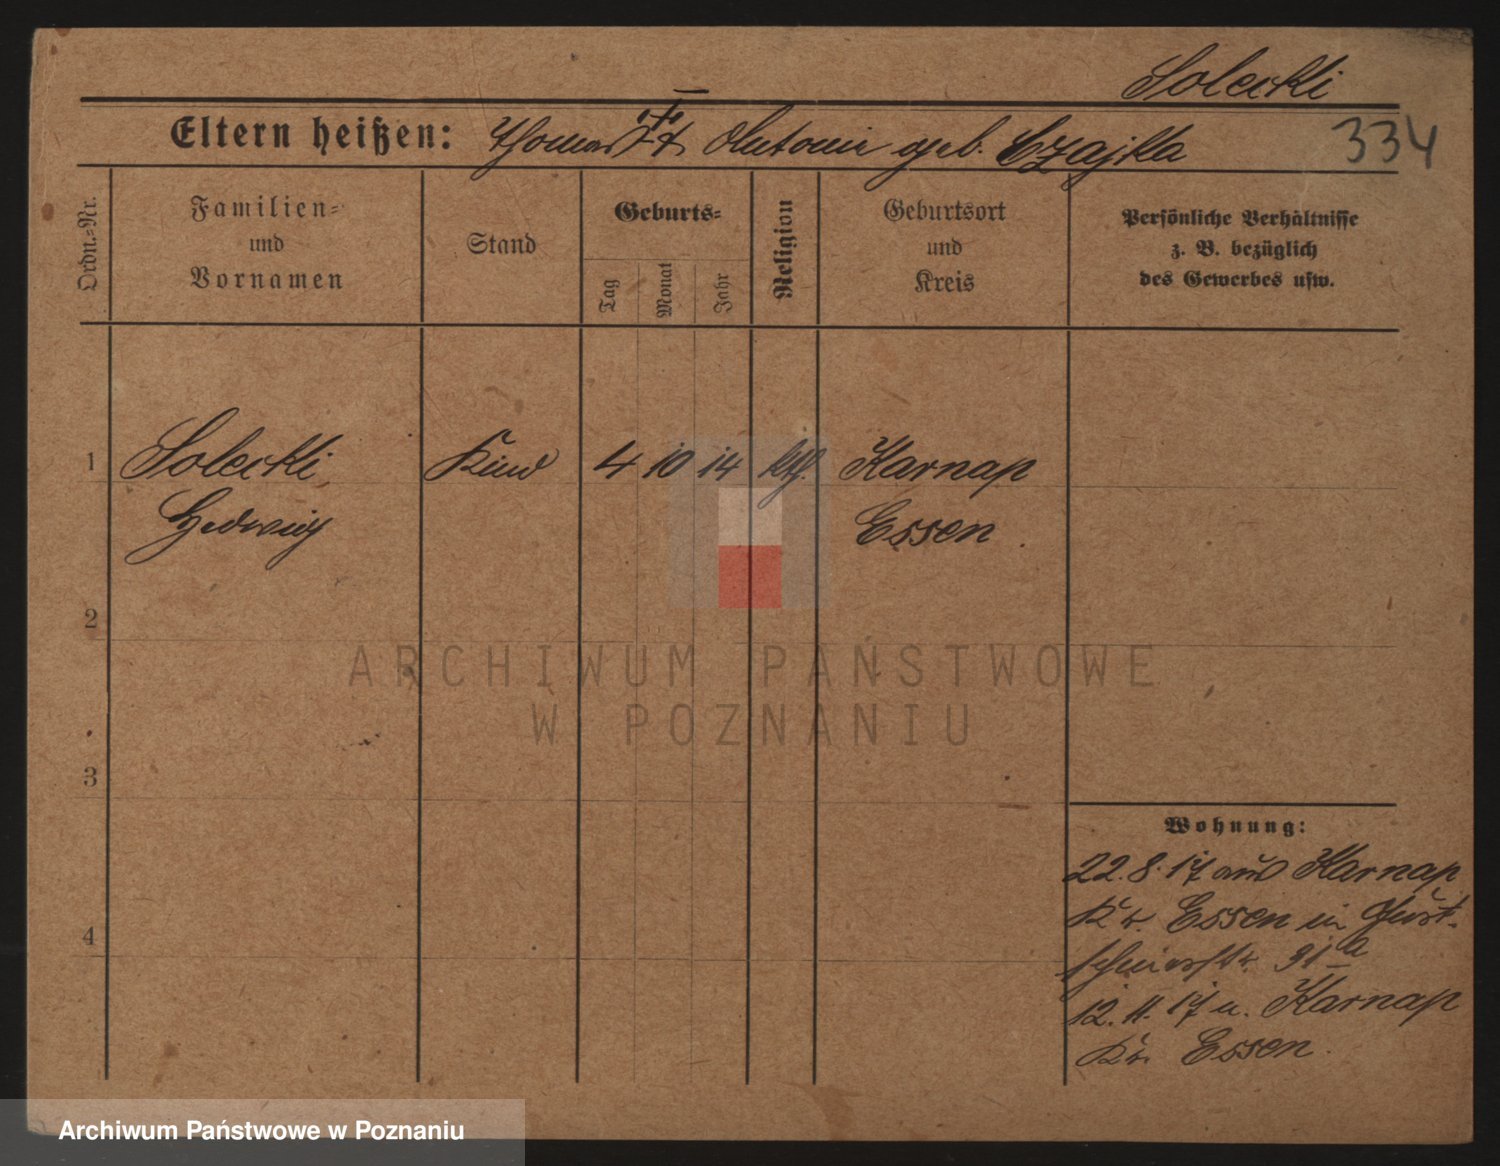 Solecki
Eltern heißen: Thomas u. Antonie geb. Czajka
334
Ordn.-Nr.
Familien- und Vornamen
Stand
Geburts-
Tag
Monat
Jahr
Religion
Geburtsort und Kreis
Persönliche Verhältnisse
z. B. bezüglich
des Gewerbes usw.
1 Solecki Kind 4 10 14 kth. Karnap
Hedwig Essen.
2
ARCHIWUM PAŃSTWOWE
W POZNANIU
3
4
Wohnung:
22.8.17 aus Karnap
Kr. Essen in
31a
12.11.17 n. Karnap
Kr. Essen.
Archiwum Państwowe w Poznaniu